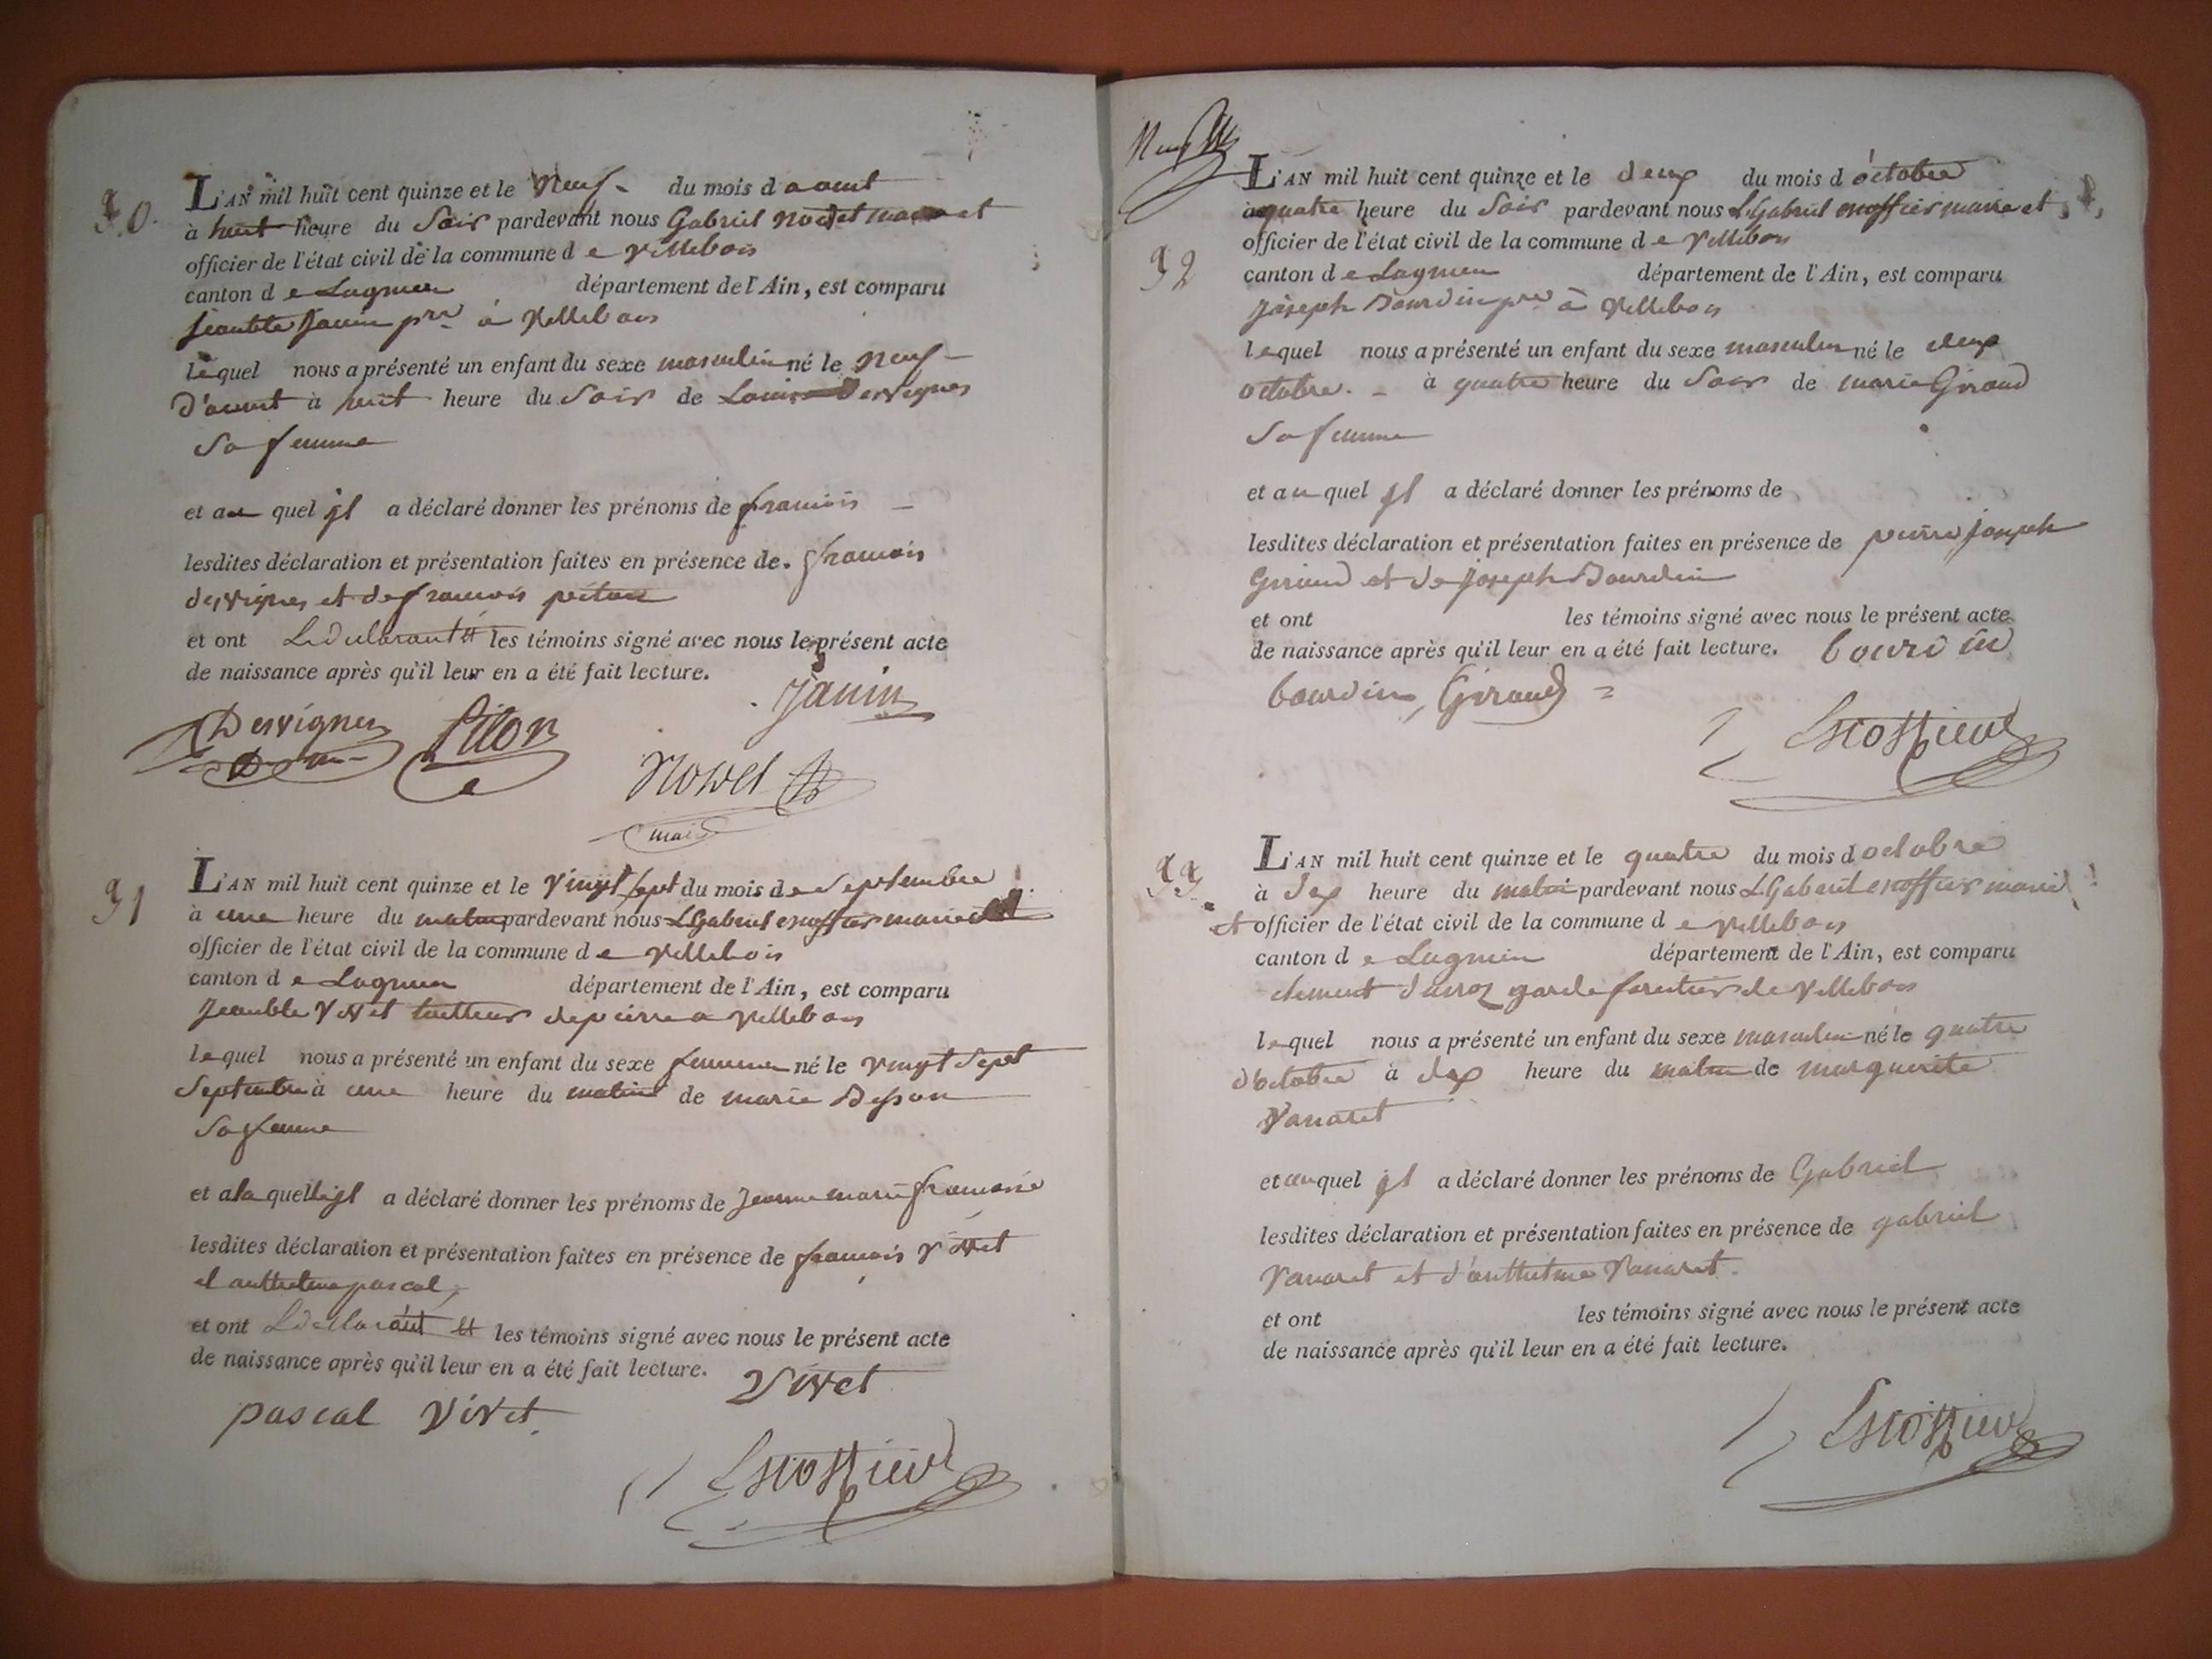 30.
L'AN mil huit cent quinze et le Neuf du mois d aout
à huit heure du Soir pardevant nous Gabriel Nodet maire et
officier de l'état civil de la commune d e Villebois
canton d e Lagnieu département de l'Ain, est comparu
Janin pre à Villebois
lequel nous a présenté un enfant du sexe masculin né le Neuf
d'aout à huit heure du Soir de Louise Dervignes
Sa femme
et au quel jl a déclaré donner les prénoms de francois
lesdites déclaration et présentation faites en présence de. francois
dervignes et de francois piton
et ont Le declarant et les témoins signé avec nous le présent acte
de naissance après qu'il leur en a été fait lecture.
Janin
Dervignes Piton
maire
31
L'AN mil huit cent quinze et le Vingt sept du mois de Septembre
à une heure du matin pardevant nous L Gabriel escoffier maire et
officier de l'état civil de la commune d e Villebois
canton d e Lagnieu département de l'Ain, est comparu
Vivet tailleur de pierre a Villebois
lequel nous a présenté un enfant du sexe né le vingt Sept
Septembre à une heure du matin de marie
Sa femme
et a la quelle jl a déclaré donner les prénoms de Jeanne marie francoise
lesdites déclaration et présentation faites en présence de francois Vivet
et anthelme pascal
et ont Le declarant et les témoins signé avec nous le présent acte
de naissance après qu'il leur en a été fait lecture.
Vivet
pascal Vivet
Escoffier
Neuf
L'AN mil huit cent quinze et le deux du mois d'octobre
à quatre heure du Soir pardevant nous L Gabriel escoffier maire et
officier de l'état civil de la commune d e Villebois
32
canton d e Lagnieu département de l'Ain, est comparu
joseph Bourdin pre à Villebois
lequel nous a présenté un enfant du sexe masculin né le deux
octobre. à quatre heure du Soir de marie Giraud
Sa femme
et au quel jl a déclaré donner les prénoms de
lesdites déclaration et présentation faites en présence de pierre joseph
Giraud et de joseph Bourdin
et ont les témoins signé avec nous le présent acte
de naissance après qu'il leur en a été fait lecture. bourdin
bourdin Giraud
Escoffier
33
L'AN mil huit cent quinze et le quatre du mois d octobre
à dix heure du matin pardevant nous L Gabriel escoffier maire
et officier de l'état civil de la commune d e Villebois
canton d e Lagnieu département de l'Ain, est comparu
clement garde forestier de Villebois
lequel nous a présenté un enfant du sexe masculin né le quatre
d'octobre à dix heure du matin de marguerite
Vanaret
et au quel jl a déclaré donner les prénoms de Gabriel
lesdites déclaration et présentation faites en présence de gabriel
Vanaret et d'anthelme Vanaret.
et ont les témoins signé avec nous le présent acte
de naissance après qu'il leur en a été fait lecture.
Escoffier